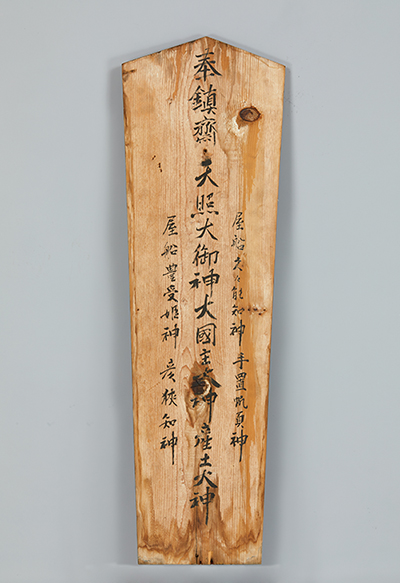 屋船久々能知神 手置帆負神
奉鎮齋 天照大御神大國主大神産土大神
屋船豊受姫神 彦狹知神